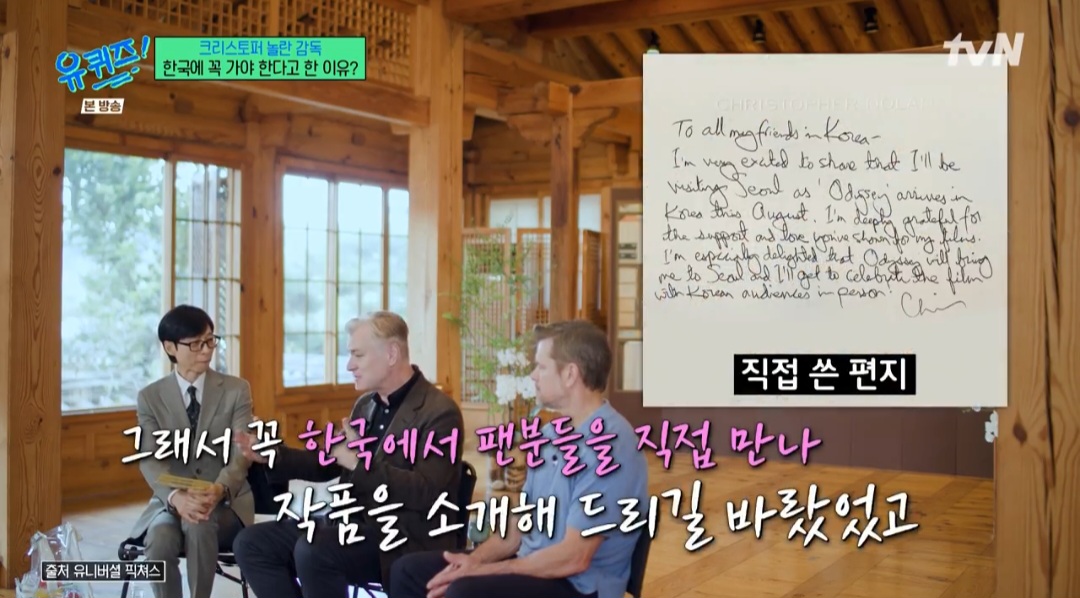 유퀴즈!
본 방송
크리스토퍼 놀란 감독
한국에 꼭 가야 한다고 한 이유?
tvN
CHRISTOPHER NOLAN
To all my friends in Korea-
I'm very excited to share that I'll be
visiting Seoul as 'Odyssey' arrives in
Korea this August. I'm deeply grateful for
the support and love you've shown for my films.
I'm especially delighted that Odyssey will bring
me to Seoul and I'll get to celebrate the film
with Korean audiences in person.
직접 쓴 편지
그래서 꼭 한국에서 팬분들을 직접 만나
작품을 소개해 드리길 바랐었고
출처 유니버설 픽쳐스